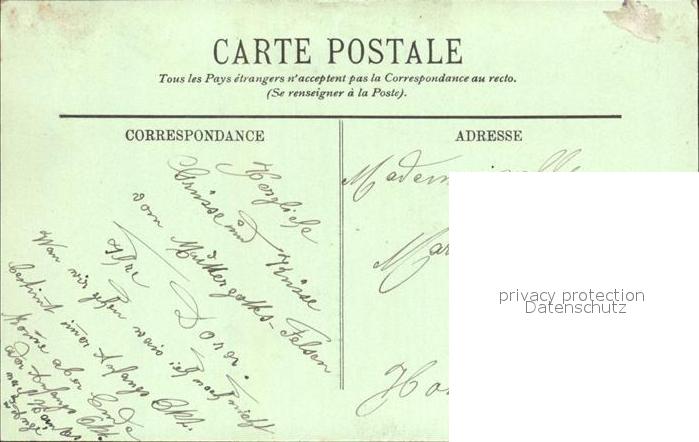 CARTE POSTALE
Tous les Pays étrangers n'acceptent pas la Correspondance au recto.
(Se renseigner à la Poste).
CORRESPONDANCE
ADRESSE
Herzliche
Grüsse und Küsse
vom Muttergotts-Felsen
Ihre Dora.
Wan wir gehen weis ich noch nicht
bestimt Anfangs Okt.
aber Ende
Anfangs Okt.
Mademoiselle
privacy protection
Datenschutz